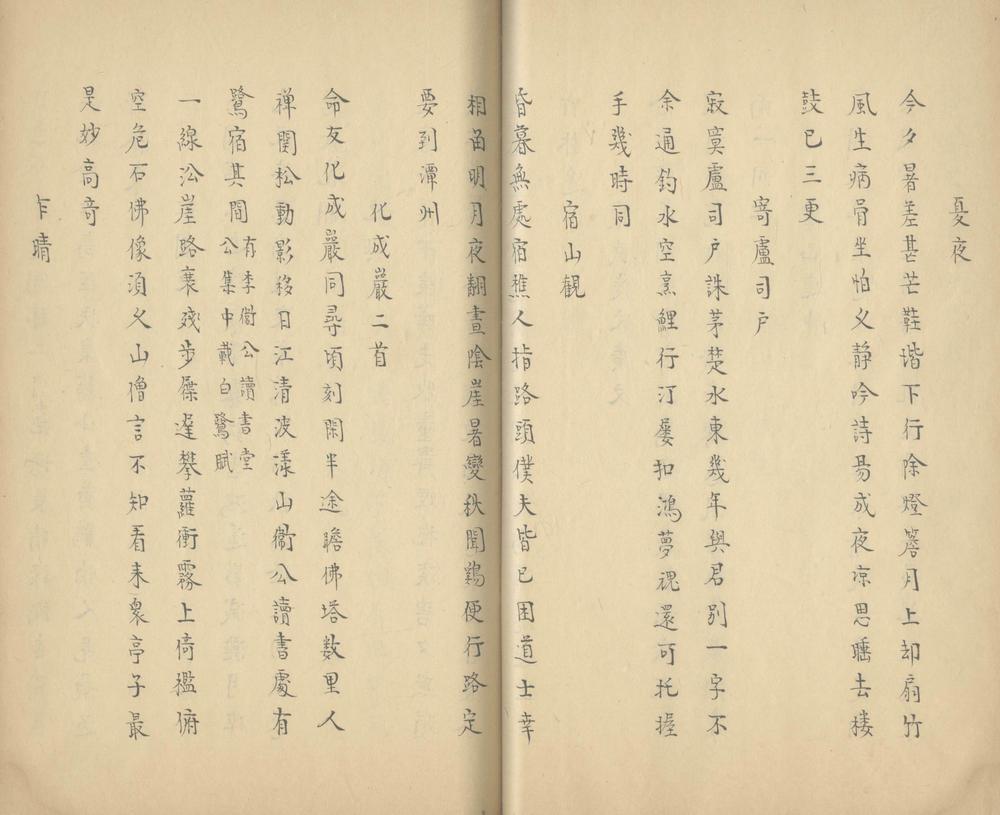 夏夜
今夕暑差甚芒鞋堦下行除燈簷月上却扇竹
風生病骨坐怕久静吟詩易成夜凉思睡去楼
鼓已三更
寄盧司户
寂寞盧司户誅茅楚水東幾年與君别一字不
余通釣水空烹鯉行汀屡扣鴻夢魂還可托握
手幾時同
宿山観
昏暮無處宿樵人指路頭僕夫皆已困道士幸
相留明月夜翻晝陰崖暑變秋聞鷄便行路定
要到潭州
化成巖二首
命友化成巖同尋頃刻閑半途瞻佛塔数里人
禅関松動影移日江清波漾山衞公讀書處有
鷺宿其間有李衞公讀書堂公集中載白鷺賦
一線㳂崖路裹殘步屧遲攀蘿衝霧上倚檻俯
空危石佛像須久山僧言不知看来衆亭子最
是妙高竒
乍晴